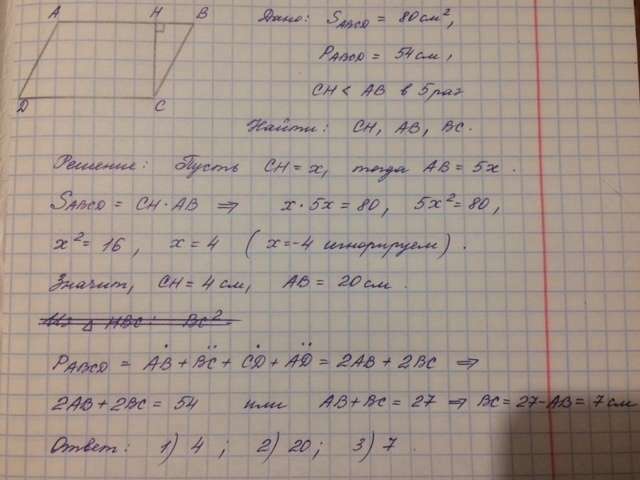 A H B
D C
Дано: S_ABCD = 80 см²,
P_ABCD = 54 см,
CH < AB в 5 раз
Найти: CH, AB, BC.
Решение: Пусть CH = x, тогда AB = 5x.
S_ABCD = CH · AB ⇒ x · 5x = 80, 5x² = 80,
x² = 16, x = 4 (x = -4 игнорируем).
Значит, CH = 4 см, AB = 20 см.
Из △ HBC: BC²
P_ABCD = AB + BC + CD + AD = 2AB + 2BC ⇒
2AB + 2BC = 54 или AB + BC = 27 ⇒ BC = 27 - AB = 7 см
Ответ: 1) 4; 2) 20; 3) 7.